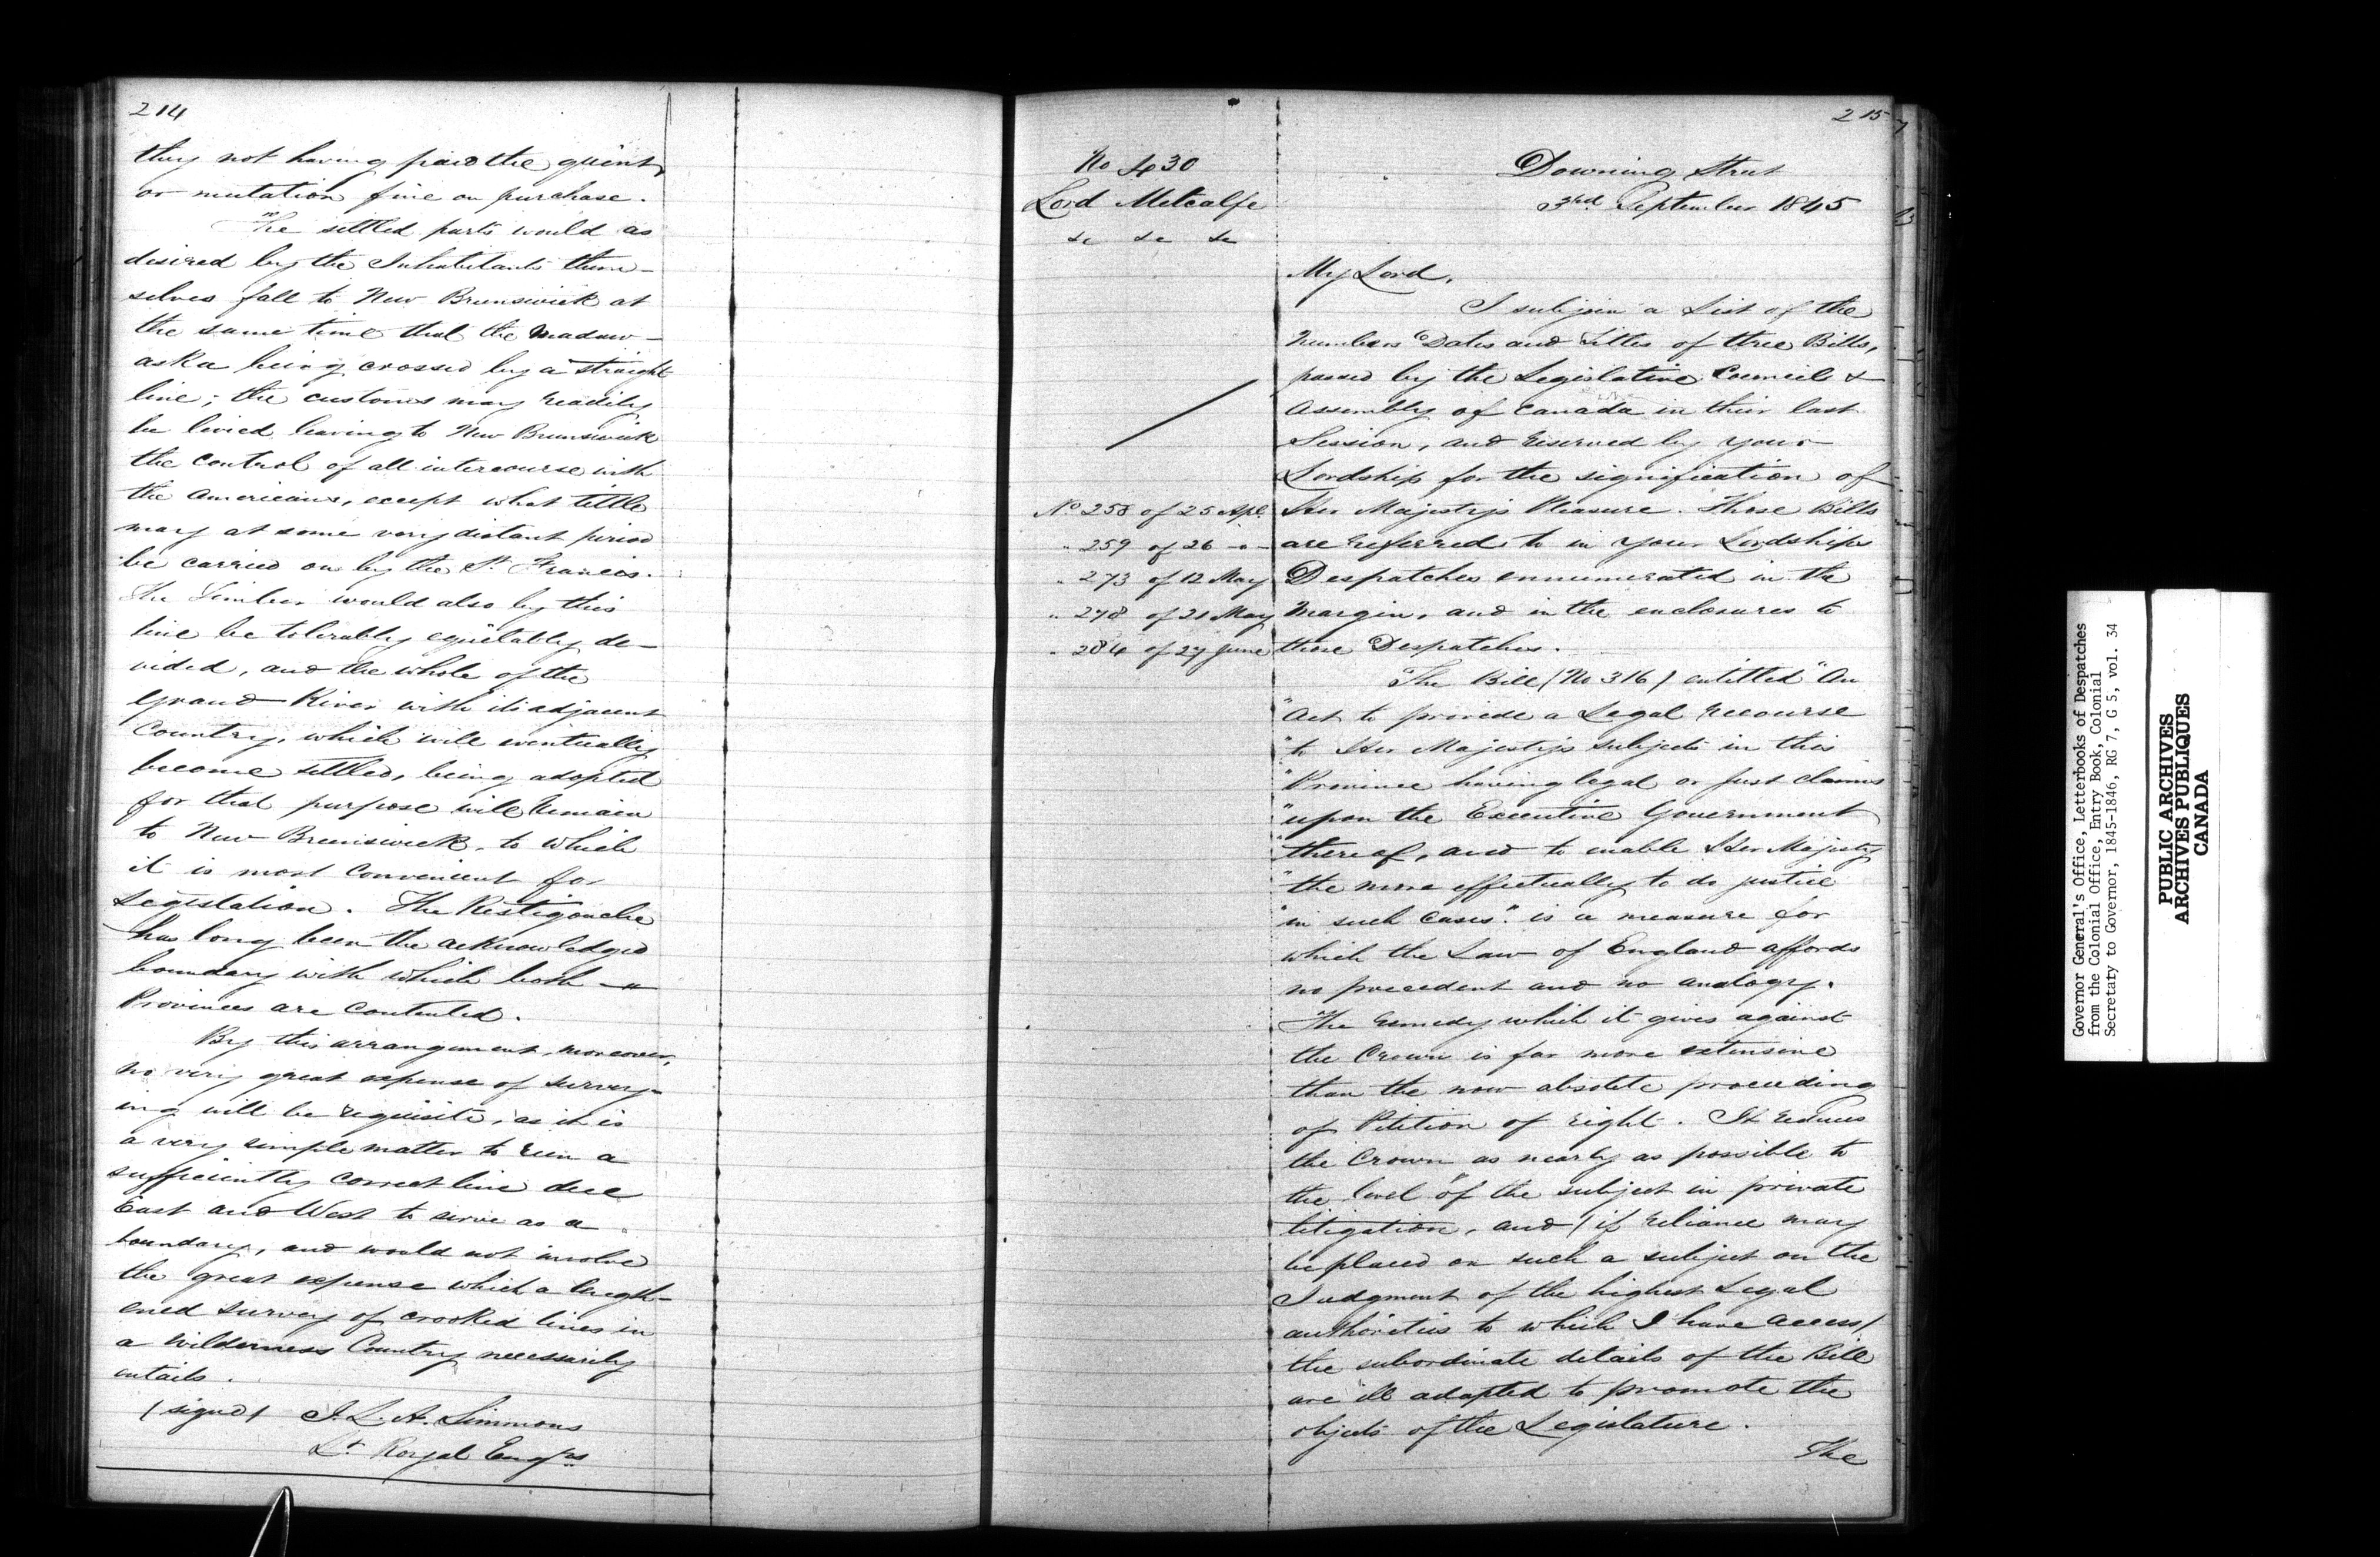 214
they not having paid the quint
or mutation fine on purchase.
The settled parts would as
desired by the Inhabitants them-
selves fall to New Brunswick at
the same time that the Madaw-
aska being crossed by a straight
line; the customs may readily
be levied leaving to New Brunswick
the control of all intercourse with
the Americans, except what little
may at some very distant period
be carried on by the St. Francis.
The Timber would also by this
line be tolerably equitably de-
vided, and the whole of the
Grand River with its adjacent
Country, which will eventually
become settled, being adapted
for that purpose will remain
to New Brunswick, to which
it is most convenient for
Legislation. The Restigouche
has long been the acknowledged
boundary with which both
Provinces are contented.
By this arrangement, moreover,
no very great expense of survey-
ing will be requisite, as it is
a very simple matter to run a
sufficiently correct line due
East and West to serve as a
boundary, and would not involve
the great expense which a length-
ened survey of crooked lines in
a wilderness Country necessarily
entails.
(signed) J. L. A. Simmons
Lt Royal Engrs
215
No 430
Lord Metcalfe
&c &c &c
Downing Street
3rd September 1845
My Lord,
I subjoin a List of the
Numbers Dates and Titles of three Bills,
passed by the Legislative Council &
Assembly of Canada in their last
Session, and reserved by your
Lordship for the signification of
No 258 of 25 Apl.
" 259 of 26 -o-
" 273 of 12 May
" 278 of 21 May
" 284 of 27 June
Her Majesty's Pleasure. Those Bills
are referred to in your Lordships
Despatches ennumerated in the
Margin, and in the enclosures to
those Despatches.
The Bill (No 316) entitled "An
"Act to provide a Legal recourse
"to Her Majesty's subjects in this
"Province having legal or just claims
"upon the Executive Government
"thereof, and to enable Her Majesty
"the more effectually to do justice
"in such cases". is a measure for
which the Law of England affords
no precedent and no analogy.
The remedy which it gives against
the Crown is far more extensive
than the now obsolete proceeding
of Petition of right. It reduces
the Crown as nearly as possible to
the level of the subject in private
litigation, and (if reliance may
be placed on such a subject on the
Judgment of the highest Legal
authorities to which I have access)
the subordinate details of the Bill
are ill adapted to promote the
objects of the Legislature.
The
Governor General's Office, Letterbooks of Despatches
from the Colonial Office, Entry Book, Colonial
Secretary to Governor, 1845-1846, RG 7, G 5, vol. 34
PUBLIC ARCHIVES
ARCHIVES PUBLIQUES
CANADA